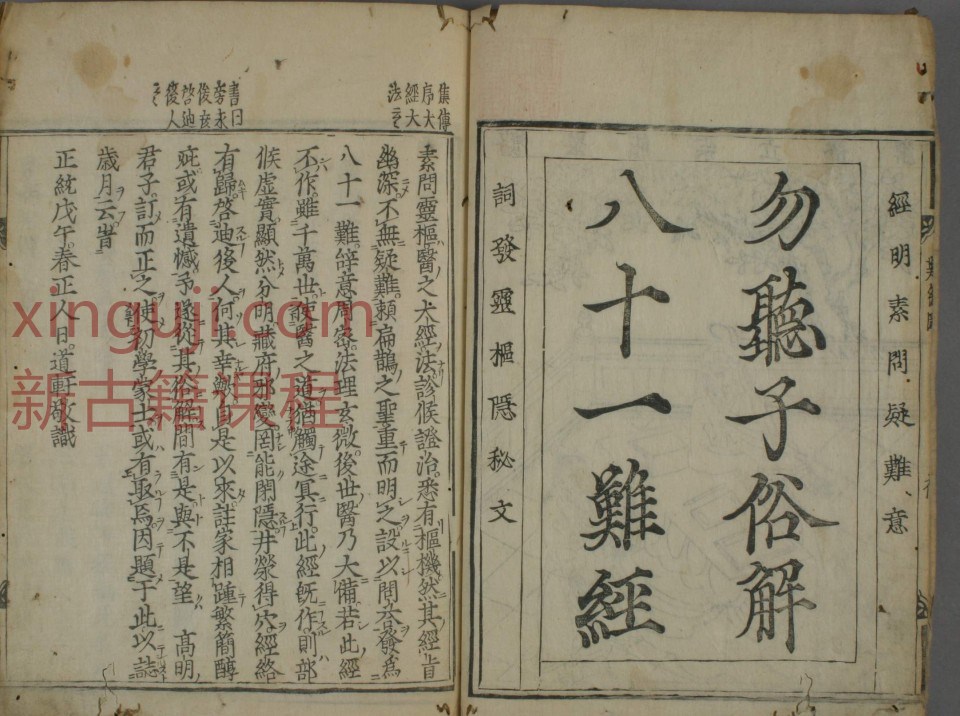 經明素問疑難意
勿聽子俗解
八十一難經
詞發靈樞隱秘文
集傳
序大
經大
法云
書曰
旁求
俊彥
啓迪
後人
云
素問靈樞醫之大經法診候證治悉有樞機然其經旨
幽深不無疑難賴扁鵲之聖重而明之設以問荅發爲
八十一難辝意周密法理玄微後世醫乃大備若此經
不作雖千萬世使醫之道猶觸途冥行此經旣作則部
候虛實顯然分明藏府邪變罔能閉隱井滎得穴經絡
有歸啓迪後人何其幸歟自是以來註家相踵繁簡醇
疵或有遺憾予遂從其俗解間有是與不是望 高明
君子訂而正之使初學蒙士或有取焉因題于此以誌
歳月云旹
正統戊午春正人日道軒敬識
xingujicom
新古籍课程